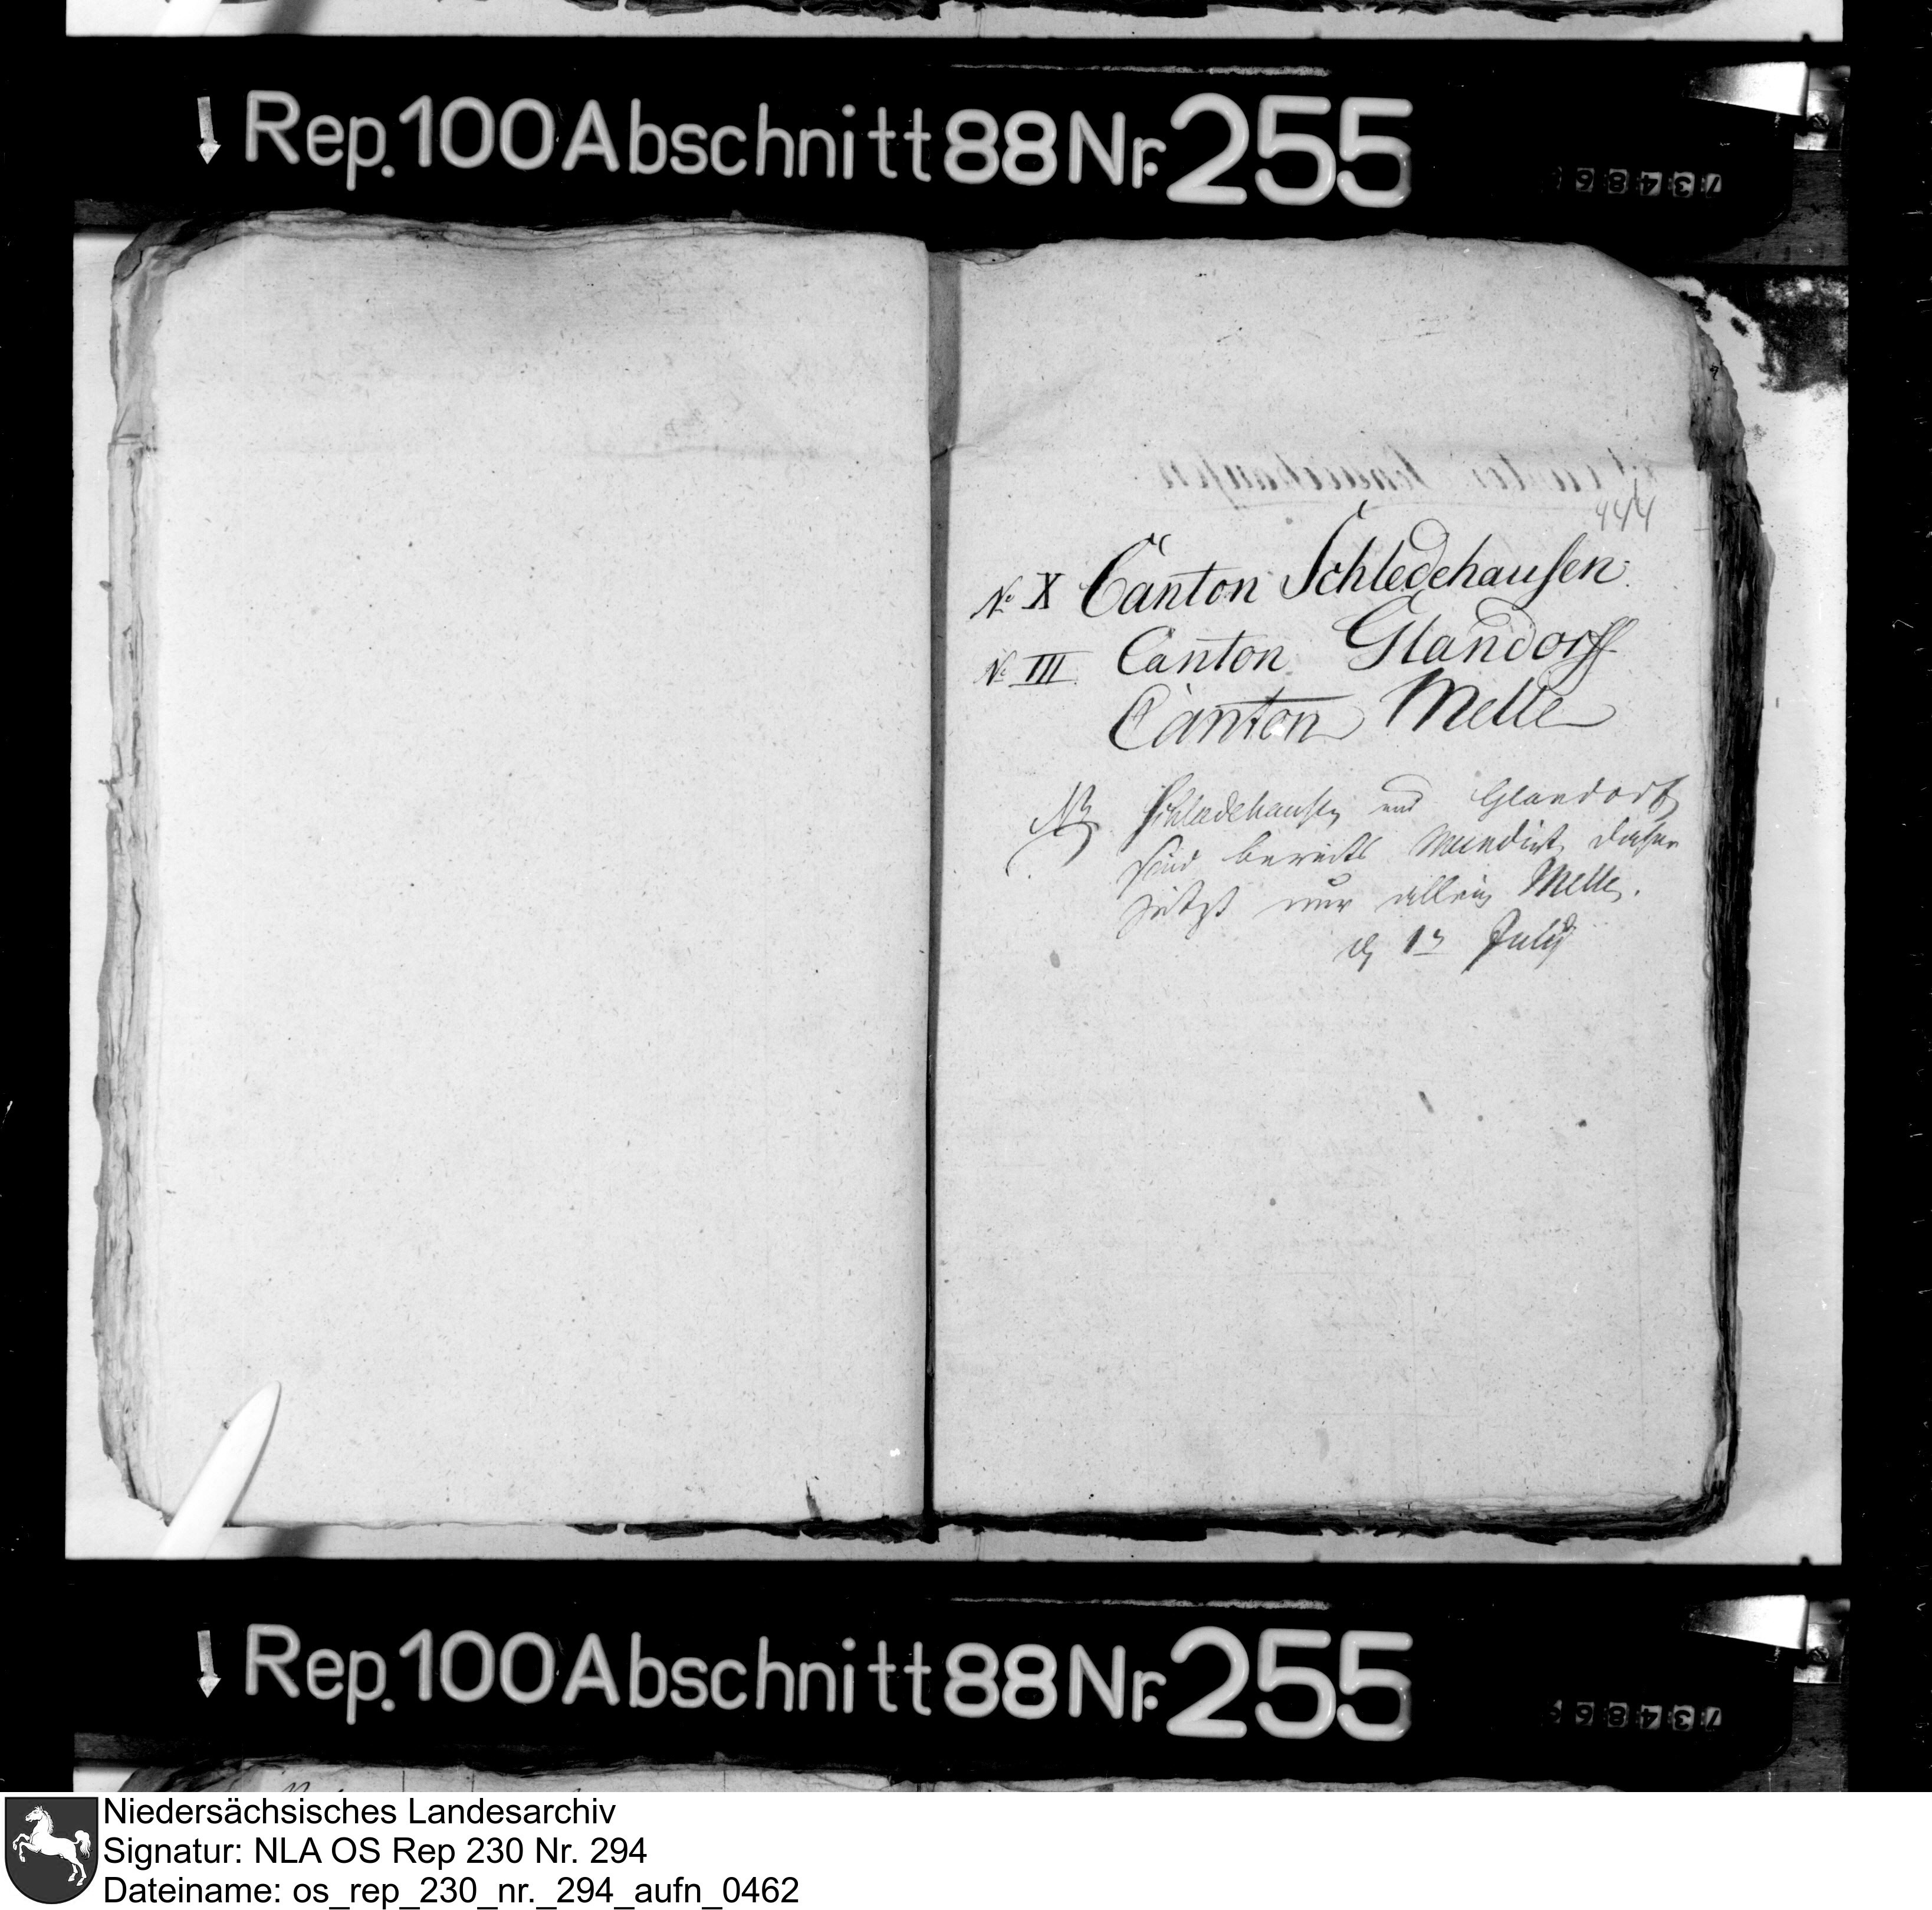 Rep. 100 Abschnitt 88 Nr. 255
444
No X Canton Schledehausen.
No III. Canton Glandorff
Canton Melle
NB Schledehausen und Glandorf
sind bereits mundirt, daher
jetzt nur allein Melle.
July
Rep. 100 Abschnitt 88 Nr. 255
Niedersächsisches Landesarchiv
Signatur: NLA OS Rep 230 Nr. 294
Dateiname: os_rep_230_nr._294_aufn_0462